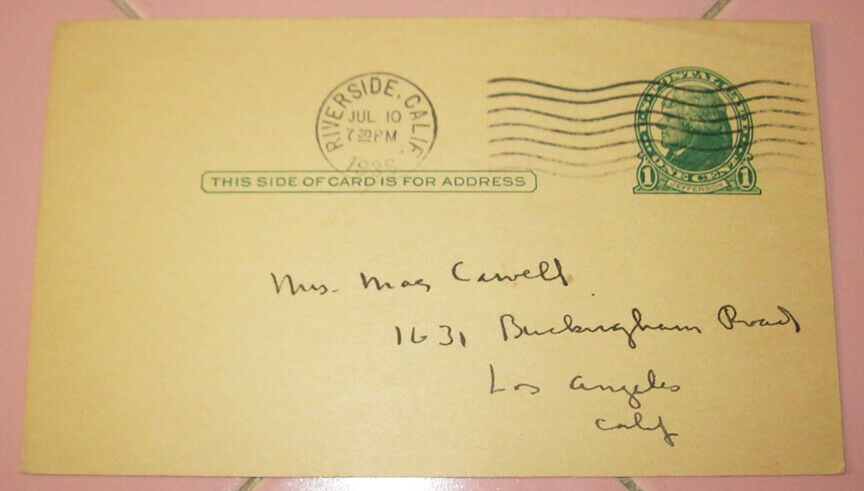 RIVERSIDE, CALIF.
JUL 10
7 30 PM
U.S. POSTAL CARD
ONE CENT
1 JEFFERSON 1
THIS SIDE OF CARD IS FOR ADDRESS
Mrs. Mae
1631 Buckingham Road
Los Angeles
Calif